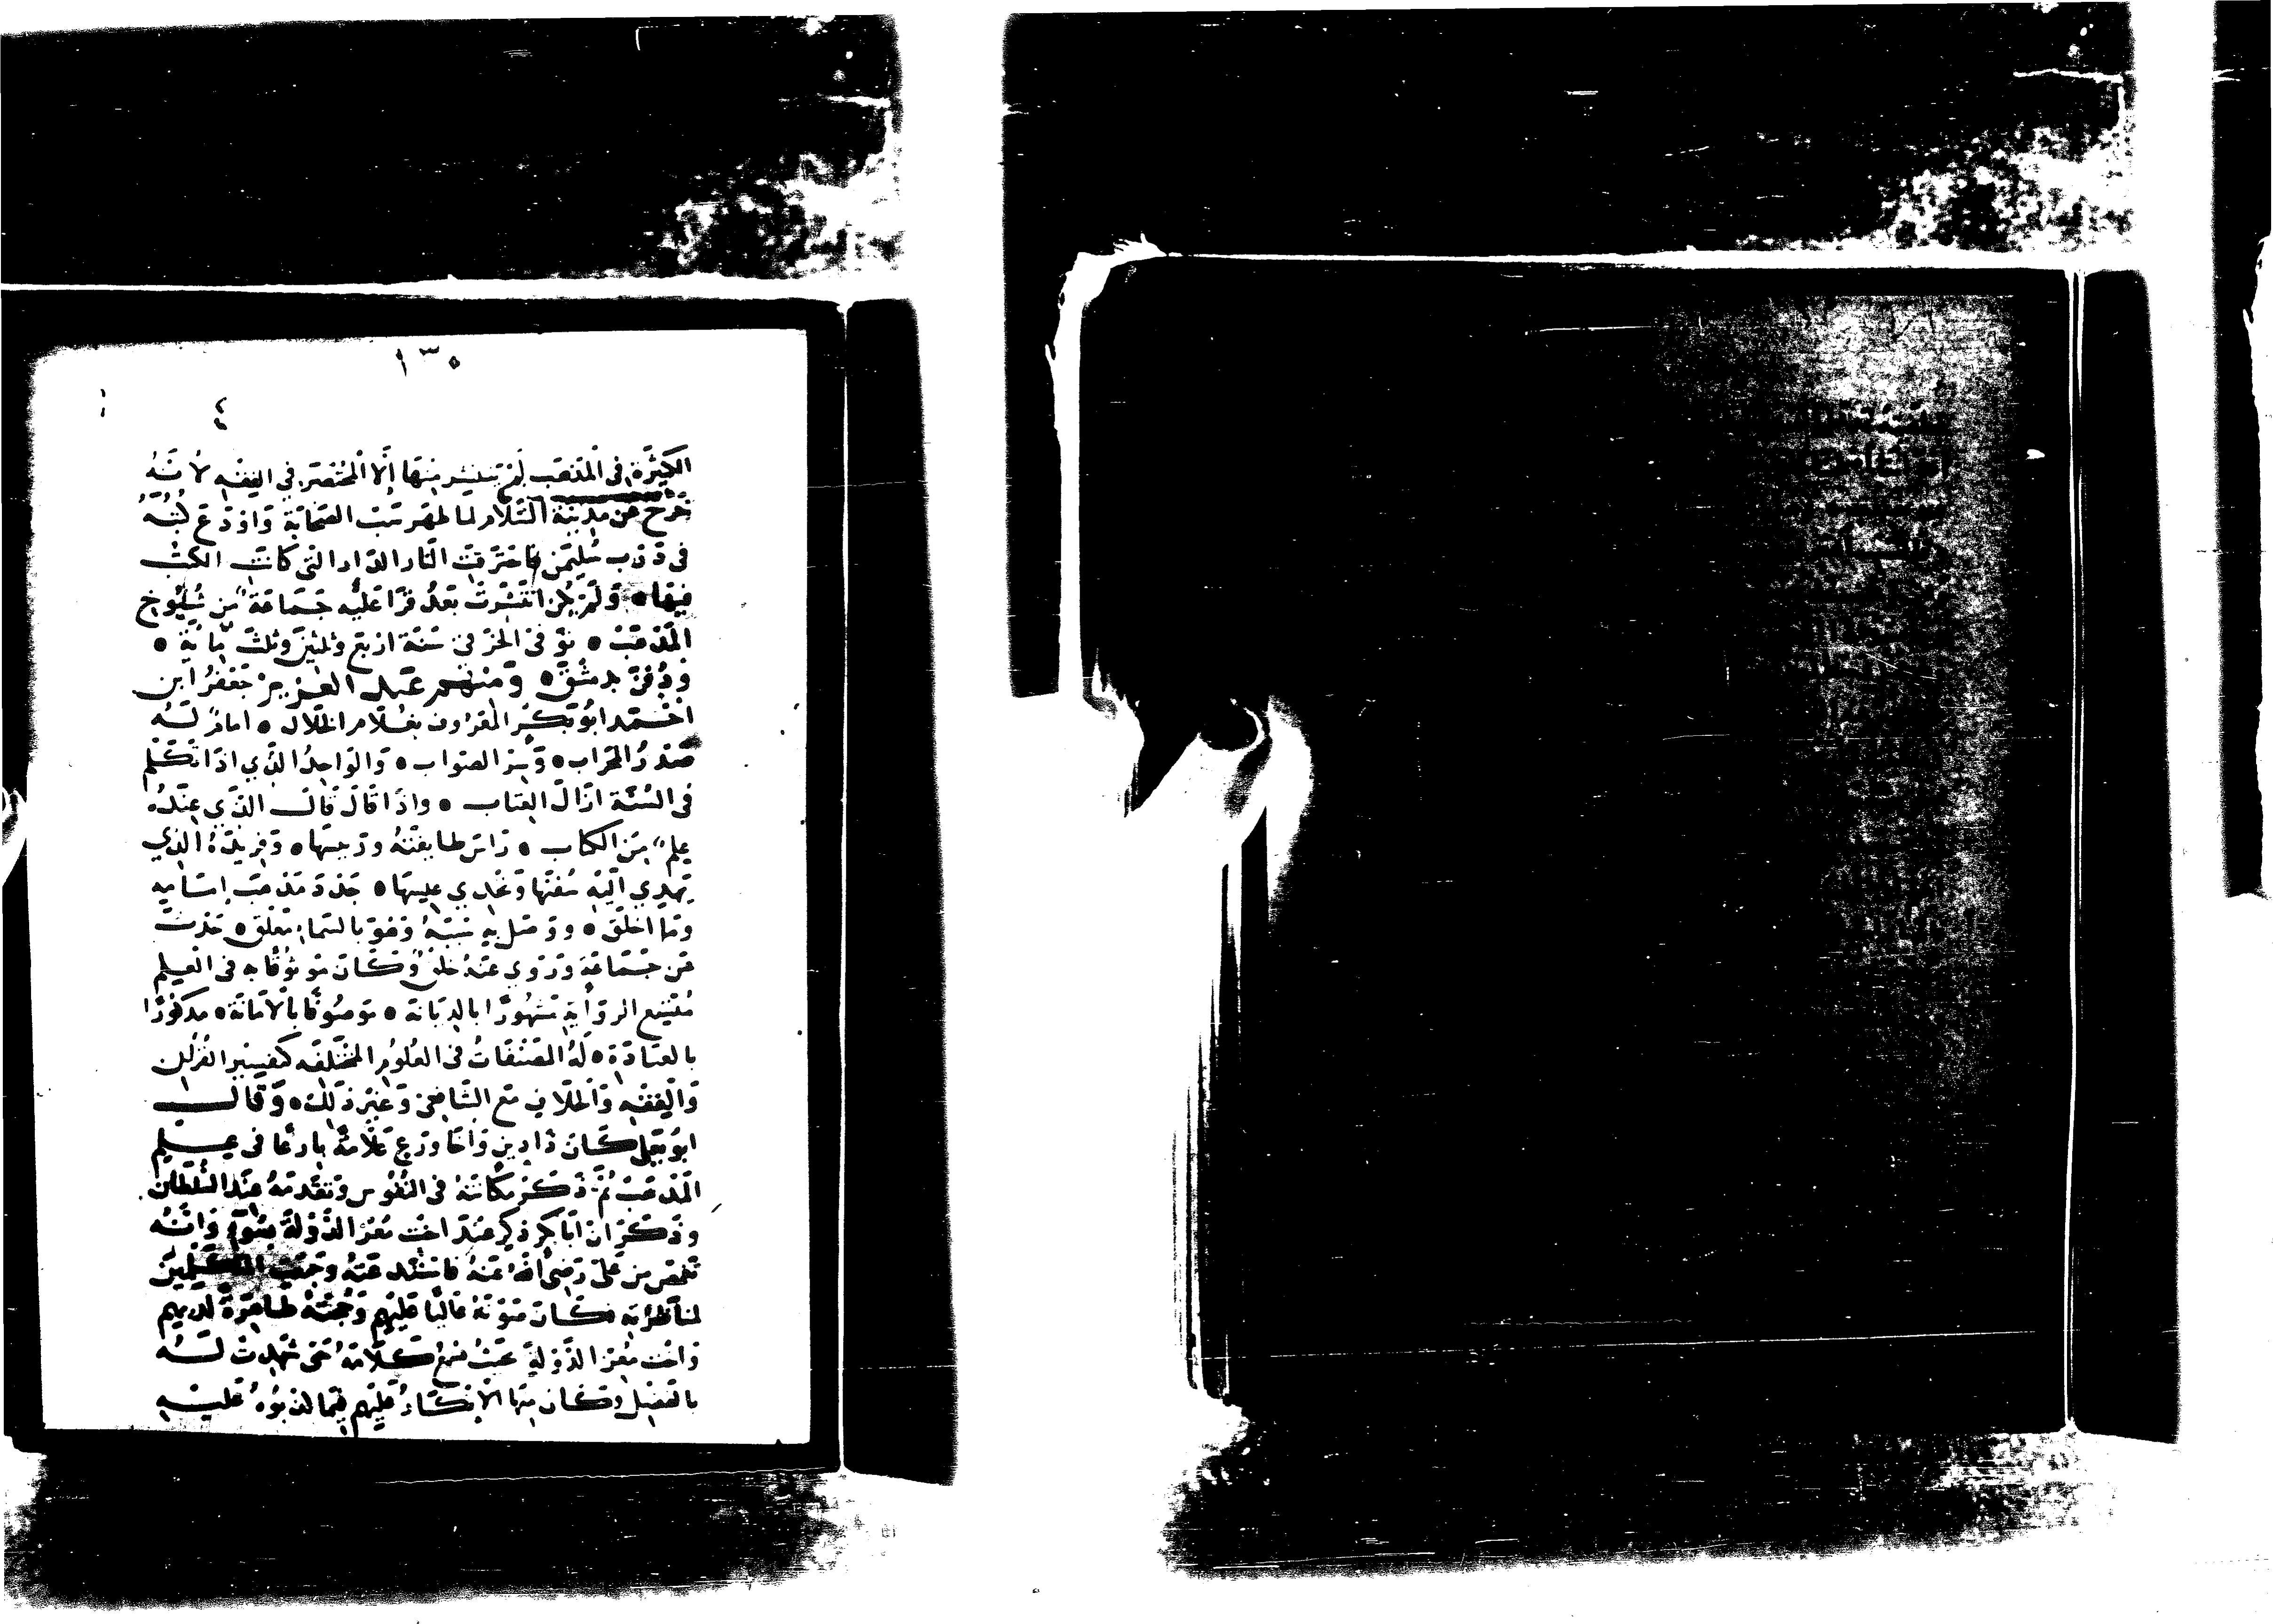 ١٣٥
٤
الكثيرة في المذهب لم ينتشر منها إلا المختصر في الفقه لأنه
خرج عن مدينة السلام لما ظهر سب الصحابة واودع كتبه
في درب سليمن فاحترقت الدار التي كانت الكتب
فيها ولم يكن انتشرت بعد قرا عليه جماعة من شيوخ
المذهب توفي الخرقي سنة اربع وثلثين وثلث مائة
ودفن بدمشق ومنهم عبد العزيز جعفر ابن
احمد ابو بكر المعروف بغلام الخلال امام له
صدر المحراب وسر الصواب والواحد الذي اذا تكلم
في السنة ازال العتاب واذا قال قال الذي عنده
علم من الكتاب راس طايفته ورييسها وفريده الذي
يهدي اليه
وما اخلق ووصل به وهو بالسماء معلق حدث
عن جماعة وروى عنه خلق وكان موثوقا به في العلم
متسع الرواية مشهورا بالديانة موصوفا بالامانة مذكورا
بالعبادة له المصنفات في العلوم المختلفه كتفسير القران
والفقه والخلاف مع الشافعي وغير ذلك وقال
ابو يعلى كان ذا دين واخا ورع علامة بارعا في علم
المذهب ثم ذكر مكانته في النفوس وتقدمه عند السلطان
وذكر ان ابا بكر ذكر عند اخت معز الدولة بسوء وانه
يغض من علي رضي الله عنه وجمعت المتكلمين
لمناظرته فكان صوته عاليا عليهم وحجته ظاهرة لديهم
واخت معز الدولة بحيث تسمع كلامه حتى شهدت له
بالفضل وكان منها الانكار عليهم فيما كذبوه عليه